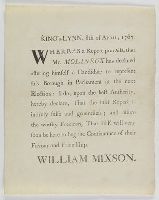 KING's-LYNN, 8th of APRIL, 1767.
WHEREAS a Report prevails, that
Mr. MOLINEUX has declined
offering himself a Candidate to represent
this Borough in Parliament at the next
Election: I do, upon the best Authority,
hereby declare, That the said Report is
intirely false and groundless; and assure
the worthy Freemen, That HE will ever
be to
Favour and Friendship.
WILLIAM MIXSON.